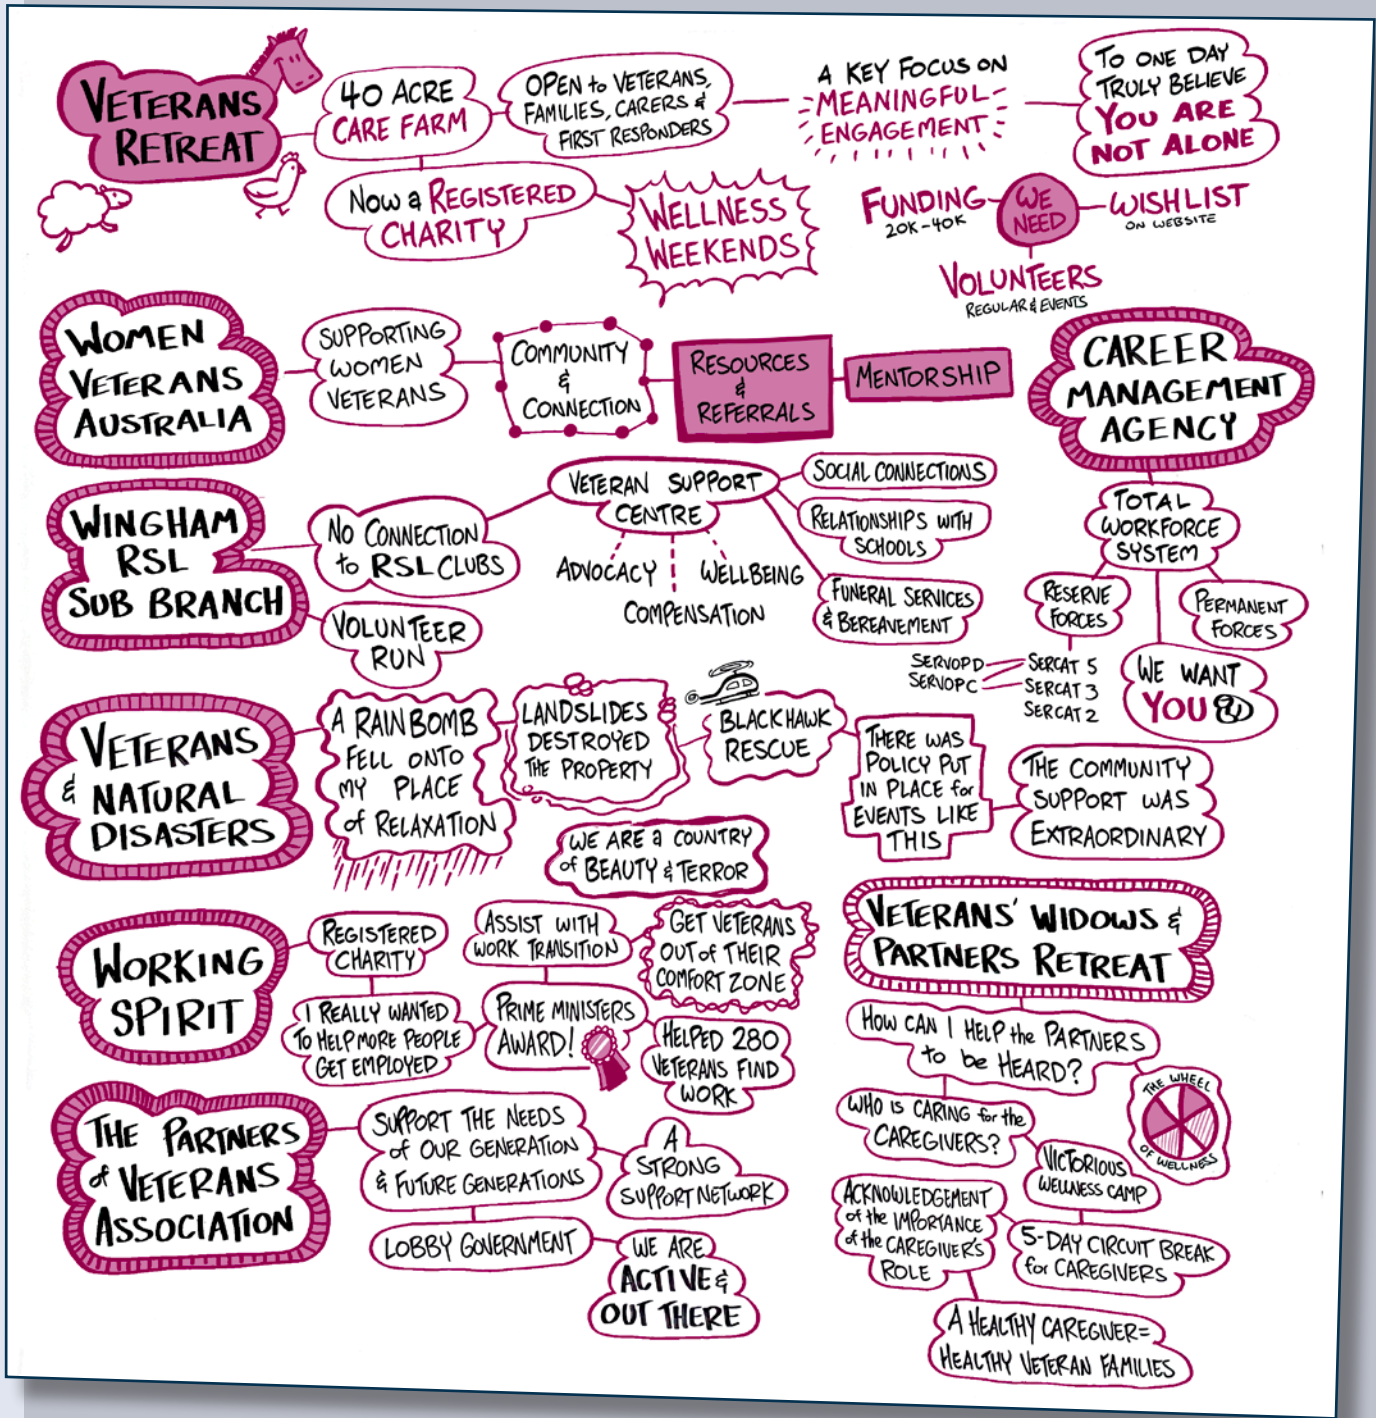 VETERANS
RETREAT
40 ACRE
CARE FARM
OPEN to VETERANS,
FAMILIES, CARERS &
FIRST RESPONDERS
A KEY FOCUS ON
MEANINGFUL
ENGAGEMENT
TO ONE DAY
TRULY BELIEVE
YOU ARE
NOT ALONE
NOW a REGISTERED
CHARITY
WELLNESS
WEEKENDS
WE
NEED
FUNDING
20K-40K
WISHLIST
ON WEBSITE
VOLUNTEERS
REGULAR & EVENTS
WOMEN
VETERANS
AUSTRALIA
SUPPORTING
WOMEN
VETERANS
COMMUNITY
&
CONNECTION
RESOURCES
&
REFERRALS
MENTORSHIP
CAREER
MANAGEMENT
AGENCY
TOTAL
WORKFORCE
SYSTEM
RESERVE
FORCES
PERMANENT
FORCES
SERVOPD
SERVOPC
SERCAT 5
SERCAT 3
SERCAT 2
WE WANT
YOU
WINGHAM
RSL
SUB BRANCH
NO CONNECTION
to RSL CLUBS
VOLUNTEER
RUN
VETERAN SUPPORT
CENTRE
ADVOCACY
COMPENSATION
WELLBEING
SOCIAL CONNECTIONS
RELATIONSHIPS WITH
SCHOOLS
FUNERAL SERVICES
& BEREAVEMENT
VETERANS
& NATURAL
DISASTERS
A RAIN BOMB
FELL ONTO
MY PLACE
of RELAXATION
LANDSLIDES
DESTROYED
THE PROPERTY
BLACKHAWK
RESCUE
THERE WAS
POLICY PUT
IN PLACE for
EVENTS LIKE
THIS
THE COMMUNITY
SUPPORT WAS
EXTRAORDINARY
WE ARE a COUNTRY
of BEAUTY & TERROR
WORKING
SPIRIT
REGISTERED
CHARITY
I REALLY WANTED
TO HELP MORE PEOPLE
GET EMPLOYED
ASSIST WITH
WORK TRANSITION
PRIME MINISTERS
AWARD!
GET VETERANS
OUT of THEIR
COMFORT ZONE
HELPED 280
VETERANS FIND
WORK
VETERANS' WIDOWS &
PARTNERS RETREAT
HOW CAN I HELP the PARTNERS
to be HEARD?
THE WHEEL
OF WELLNESS
WHO IS CARING for the
CAREGIVERS?
VICTORIOUS
WELLNESS CAMP
ACKNOWLEDGEMENT
of the IMPORTANCE
of the CAREGIVER'S
ROLE
5-DAY CIRCUIT BREAK
for CAREGIVERS
A HEALTHY CAREGIVER=
HEALTHY VETERAN FAMILIES
THE PARTNERS
of VETERANS
ASSOCIATION
SUPPORT THE NEEDS
of OUR GENERATION
& FUTURE GENERATIONS
A
STRONG
SUPPORT NETWORK
LOBBY GOVERNMENT
WE ARE
ACTIVE &
OUT THERE